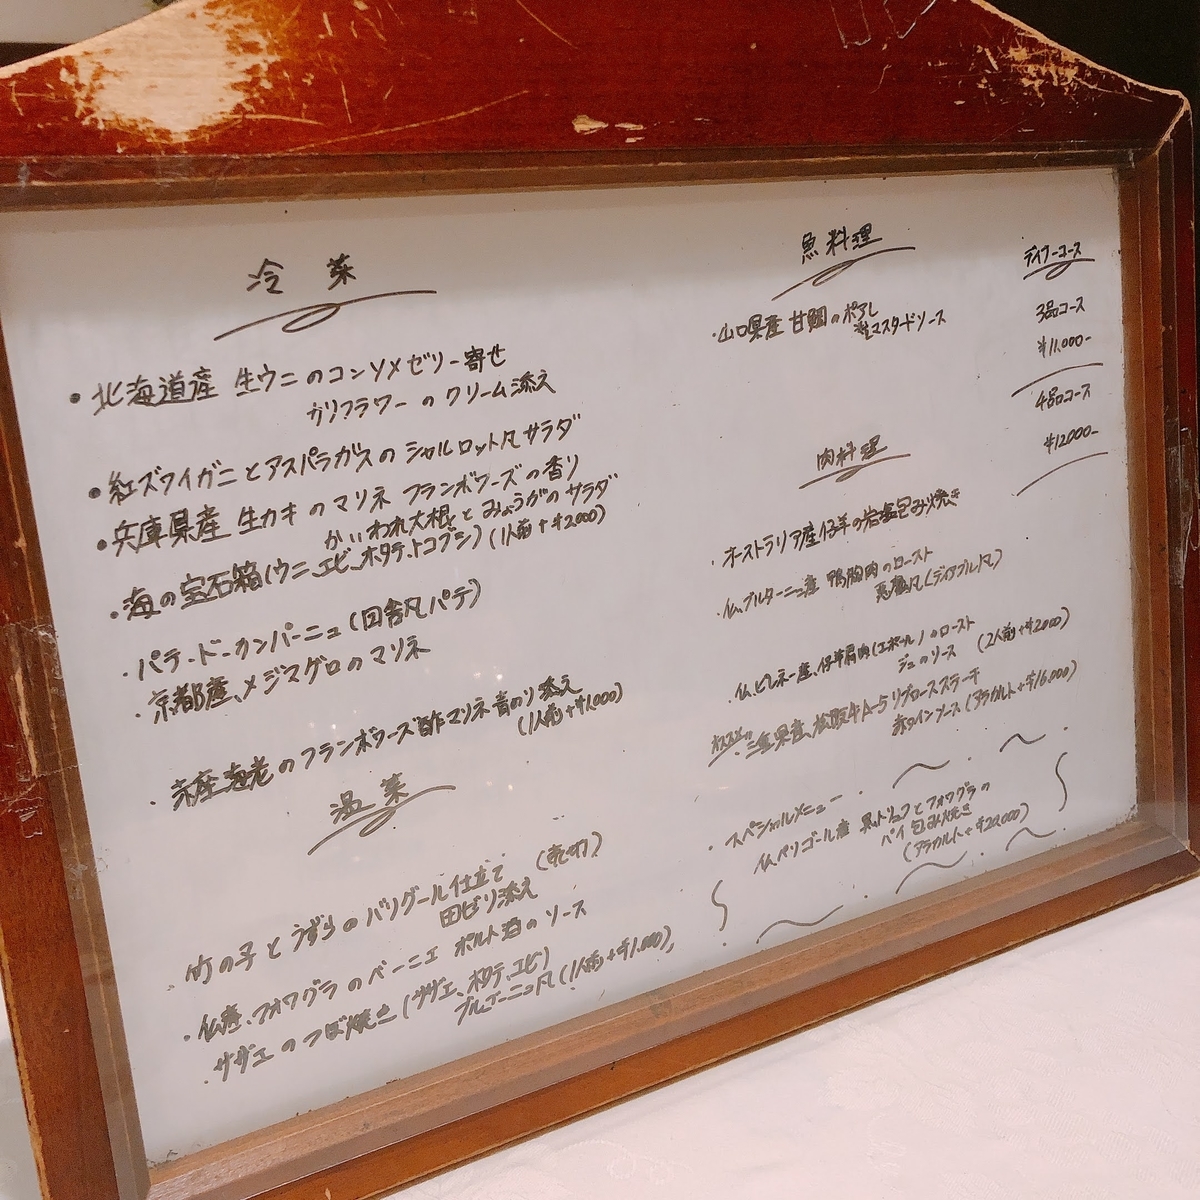 冷菜
・北海道産 生ウニのコンソメゼリー寄せ
カリフラワーのクリーム添え
・紅ズワイガニとアスパラガスのシャルロット風サラダ
・兵庫県産 生カキのマリネ フランボワーズの香り
かいわれ大根とみょうがのサラダ
・海の宝石箱(ウニ、エビ、ホタテ、トコブシ)(1人前+¥2,000)
・パテ・ド・カンパーニュ(田舎風パテ)
・京都産、メジマグロのマリネ
・赤座海老のフランボワーズ酢マリネ 青のり添え
(1人前+¥1,000)
温菜
・竹の子とうずらのバリグール仕立て
田ゼリ添え
・仏産、フォワグラのベーニエ ポルト酒のソース
・サザエのつぼ焼き(サザエ、ホタテ、エビ)
ブルゴーニュ風(1人前+¥1,000)
魚料理
・山口県産 甘鯛のポアレ
粒マスタードソース
肉料理
・オーストラリア産仔羊の岩塩包み焼き
・仏、ブルターニュ産 鴨胸肉のロースト
悪魔風(ディアブル風)
・仏、ピレネー産、仔羊肩肉(エポール)のロースト
ジュのソース (2人前+¥2,000)
オススメ!!
・三重県産、松阪牛A-5リブロースステーキ
赤ワインソース(アラカルト+¥16,000)
・スペシャルメニュー
仏、ペリゴール産 黒トリュフとフォワグラの
パイ包み焼き
(アラカルト+¥20,000)
ディナーコース
3品コース
¥11,000-
4品コース
¥12000-